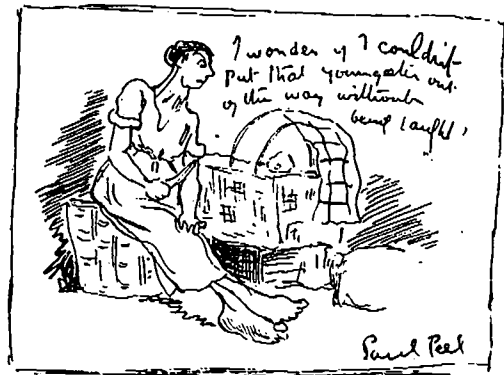 I wonder if I couldn't
put that youngster out
of the way without
being caught!
Paul Peel